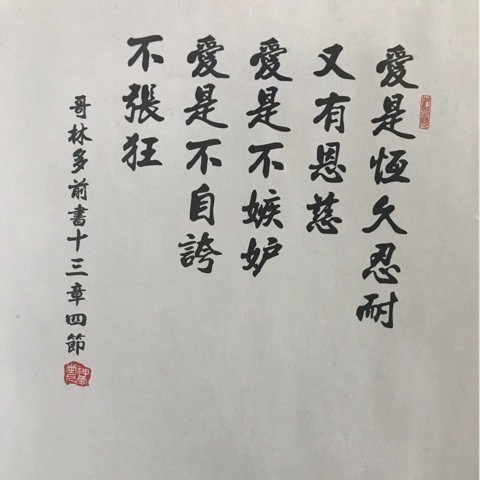 愛是恆久忍耐
又有恩慈
愛是不嫉妒
愛是不自誇
不張狂
哥林多前書十三章四節